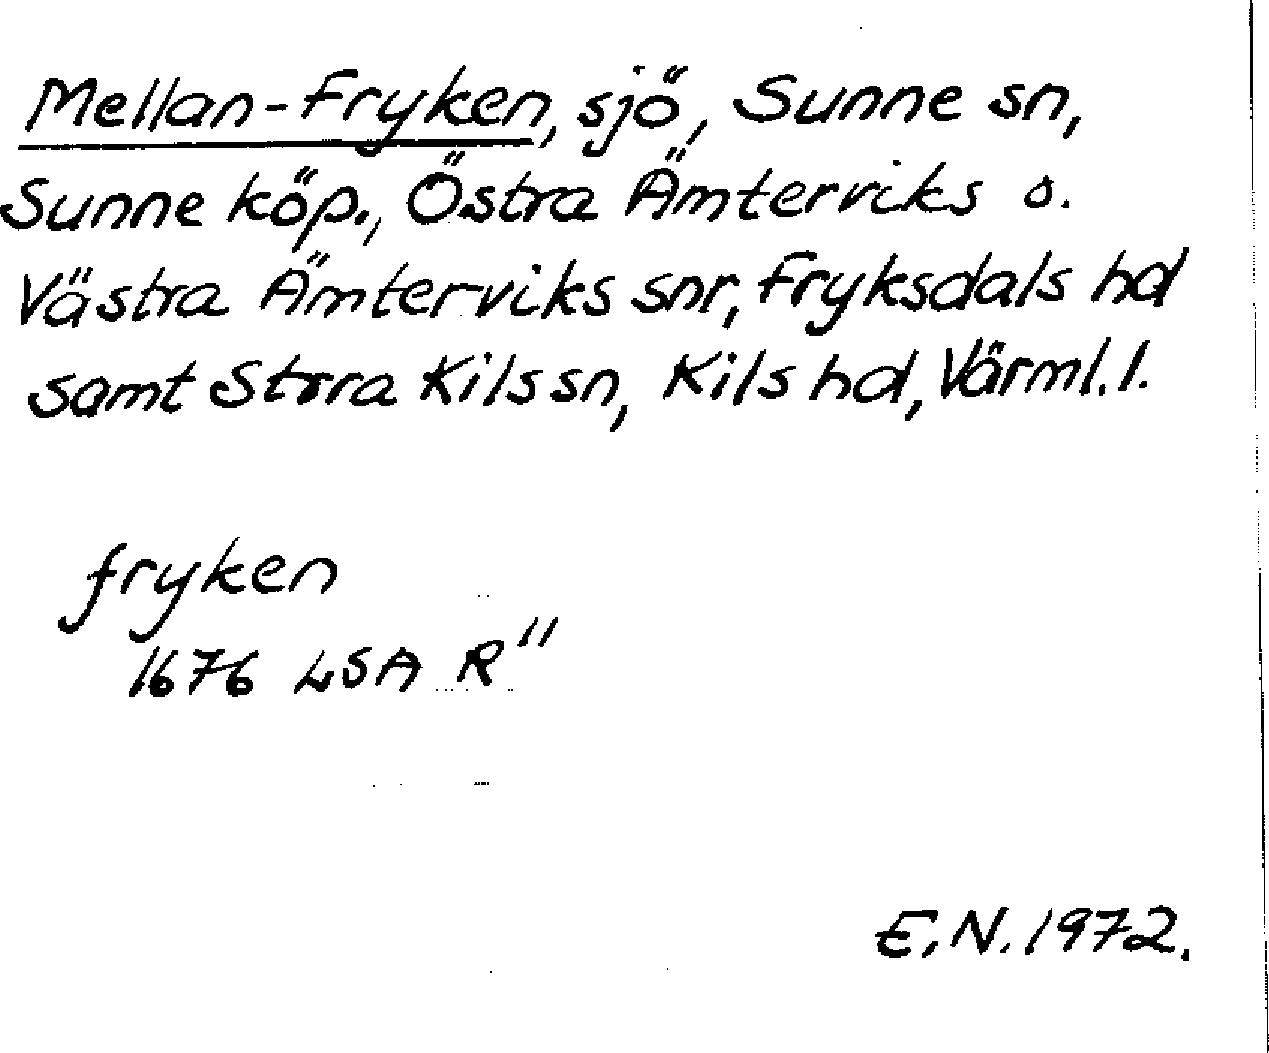 Mellan-Fryken, sjö, Sunne sn,
Sunne köp., Östra Ämterviks o.
Västra Ämterviks snr, Fryksdals hd
samt Stora Kils sn, Kils hd, Värml. l.
fryken
1676 LSA R"
E.N. 1972.